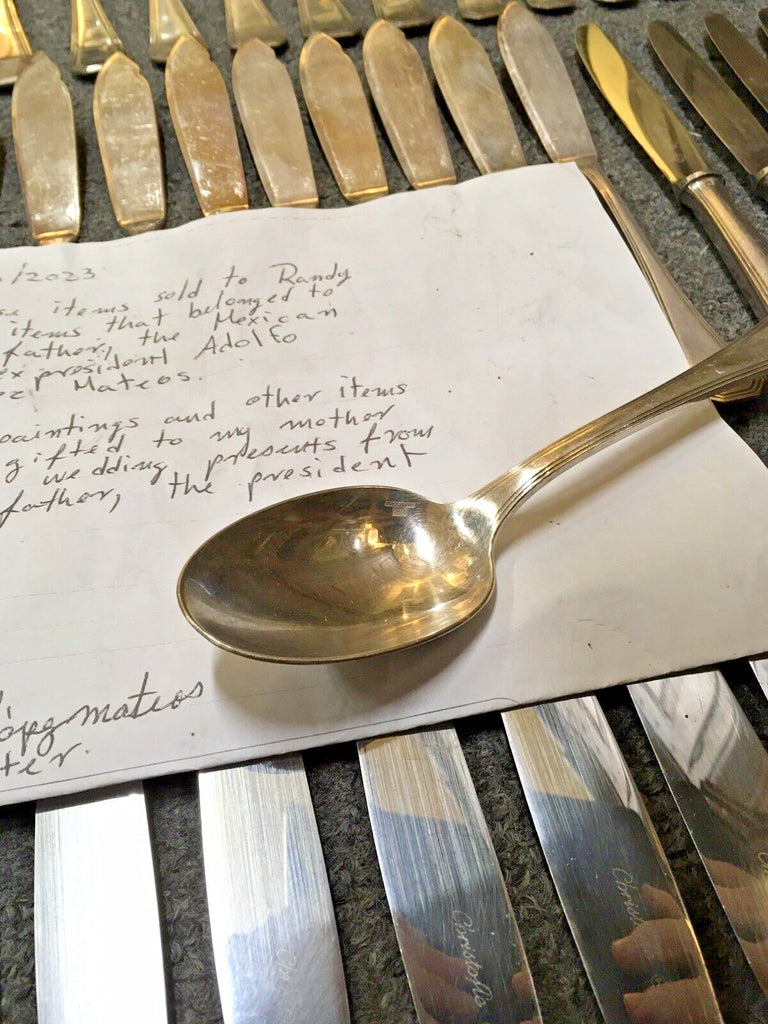 /2023
items sold to Randy
items that belonged to
father, the Mexican
ex president Adolfo
Mateos.
paintings and other items
gifted to my mother
wedding presents from
father, the president
López mateos
Christofle
Christofle